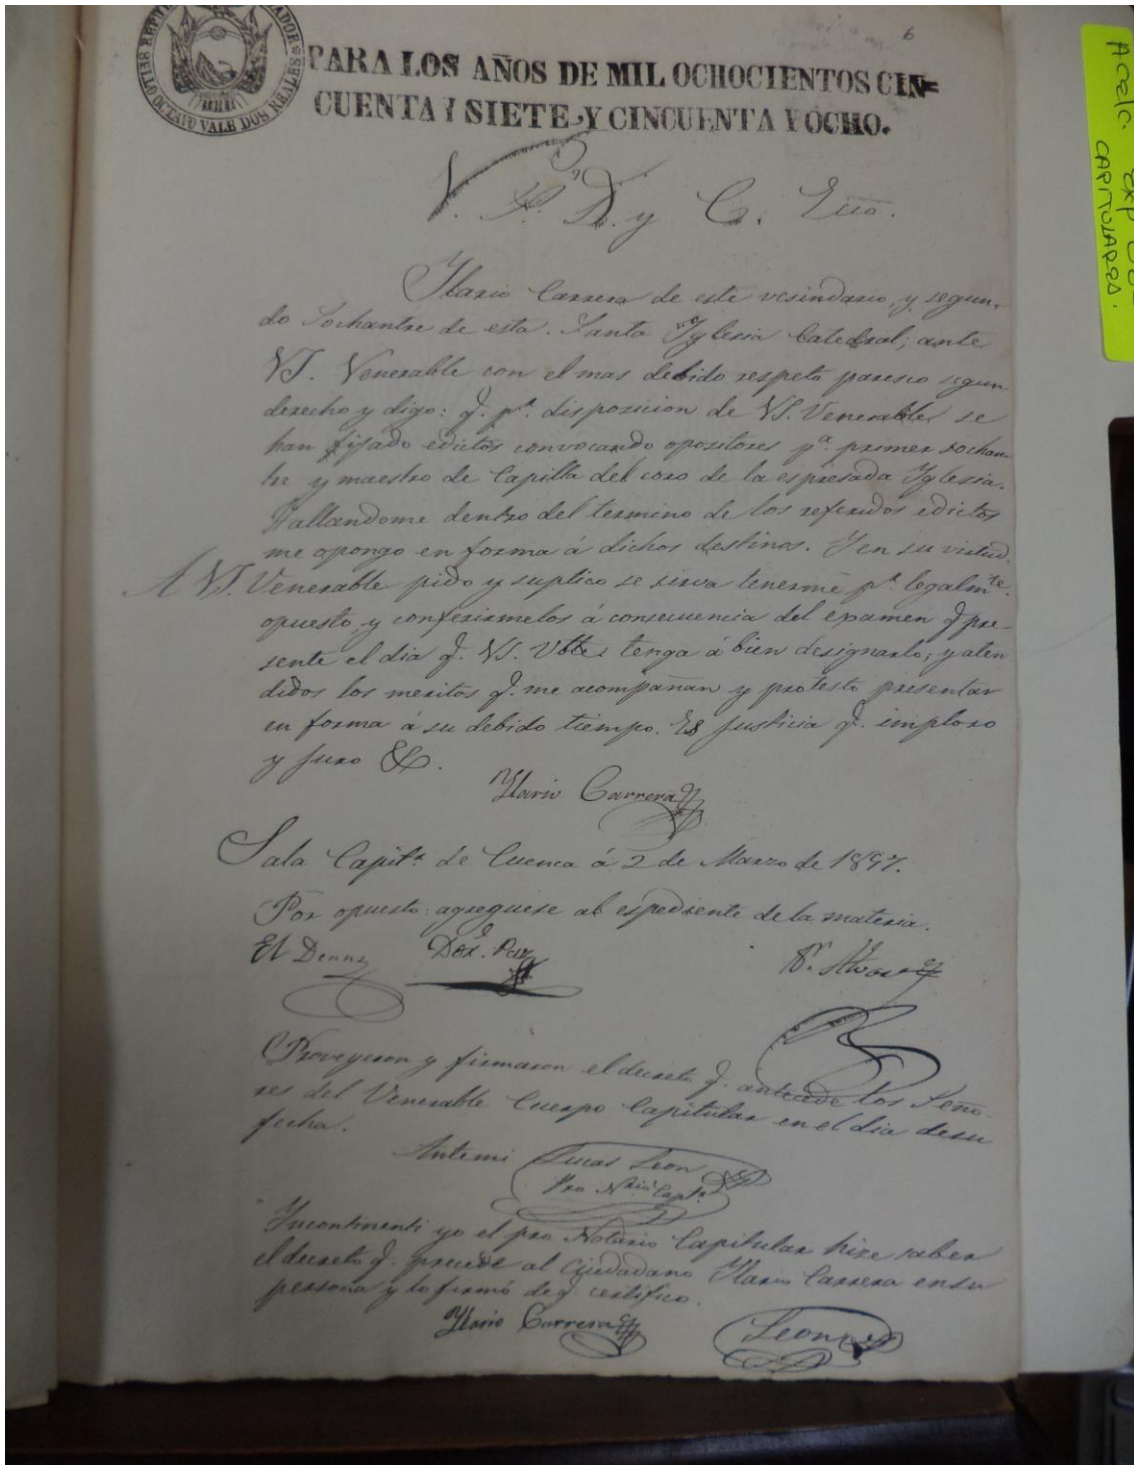 6
SELLO OCTAVO VALE DOS REALES
PARA LOS AÑOS DE MIL OCHOCIENTOS CIN=
CUENTA Y SIETE Y CINCUENTA Y OCHO.
V. S. D. y C. Ecco.
Ylario Carrera de este vesindario, y segun-
do Sochantre de esta Santa Yglesia Catedral; ante
VS. Venerable con el mas debido respeto paresco segun
derecho y digo: q. pr. disposicion de VS. Venerable se
han fijado edictos convocando opositores pa. primer sochan-
tre y maestro de Capilla del coro de la espresada Yglesia.
Hallandome dentro del termino de los referidos edictos
me opongo en forma á dichos destinos. Y en su virtud.
A VS. Venerable pido y suplico se sirva tenerme pr. legalmte.
opuesto y conferirmelos á consecuencia del examen q. pre-
sente el dia q. VS. Vble. tenga á bien designarlo; y aten
didos los meritos q. me acompañan y protesto presentar
en forma á su debido tiempo. Es justicia q. imploro
y juro &.
Ylario Carrera
Sala Capitr. de Cuenca á 2 de Marzo de 1857.
Por opuesto: agreguese al espediente de la materia.
El Dean Dor. Paz
Proveyeron y firmaron el decreto q. antecede los Seño-
res del Venerable Cuerpo Capitular en el dia de su
fecha.
Antemi Lucas Leon
Pro Nrio. Capr.
Yncontinenti yo el pro Notario Capitular hize saber
el decreto q. precede al ciudadano Ylario Carrera en su
persona y lo firmó de q. certifico.
Ylario Carrera Leon
CAPITULARES.